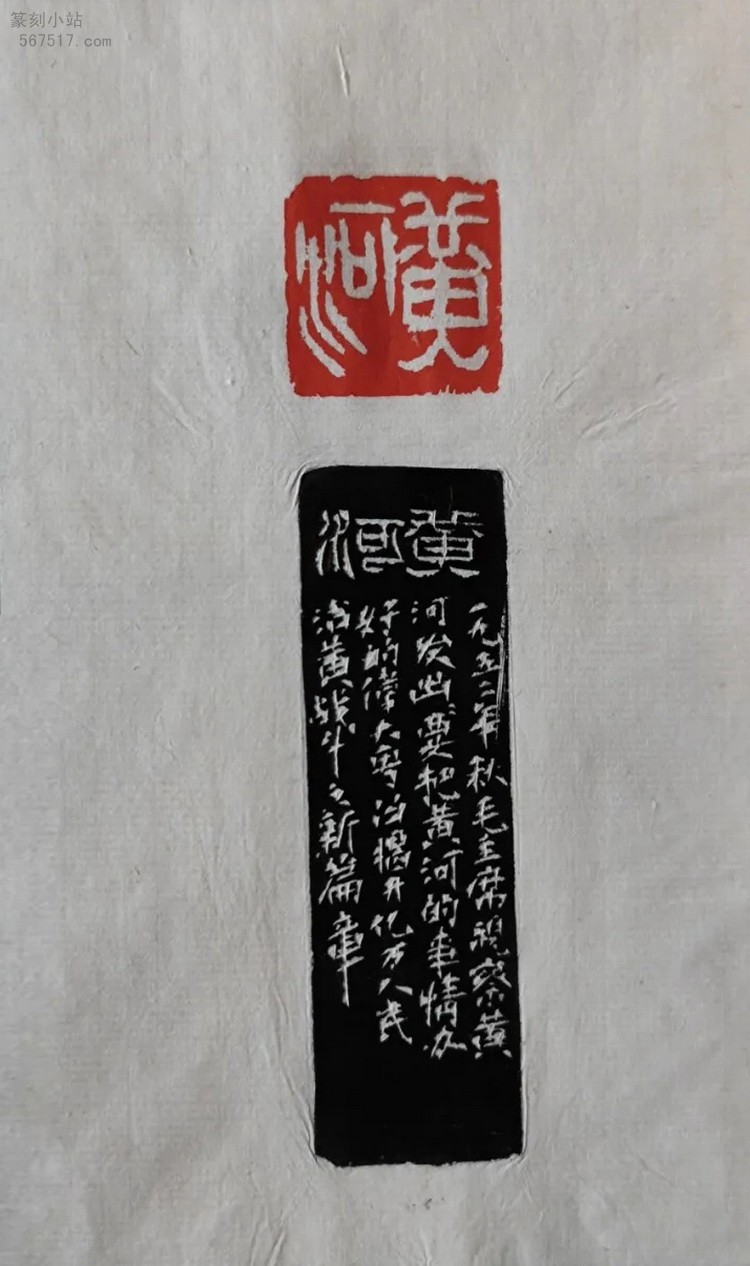 篆刻小站
567517.com
黄河
黄河
一九五二年秋毛主席视察黄
河发出要把黄河的事情办
好的伟大号召揭开亿万人民
治黄战斗之新篇章